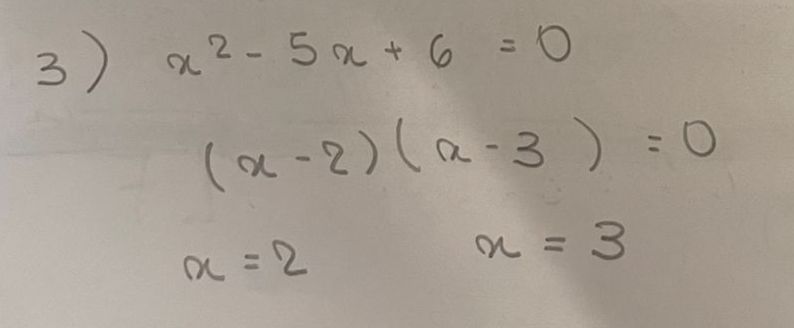 3) x² - 5x + 6 = 0
(x - 2)(x - 3) = 0
x = 2 x = 3